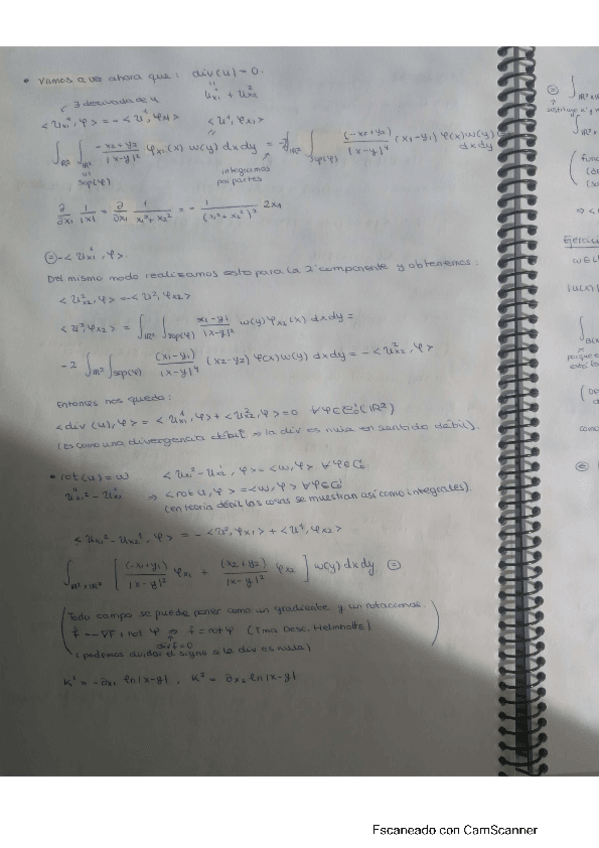 • Vamos a ver ahora que: div(u) = 0.
u¹ₓ₁ + u²ₓ₂
∃ derivada de u
< u¹ₓ₁, φ > = - < u¹, φₓ₁ > < u¹, φₓ₁ >
∫_{ℝ²} ∫_{sop(φ)} (-x₂+y₂)/|x-y|² φₓ₁(x) w(y) dx dy = -2∫_{ℝ²} ∫_{sop(φ)} (-x₂+y₂)/|x-y|⁴ (x₁-y₁) φ(x) w(y) dx dy
integramos
por partes
∂/∂x₁ 1/|x| = ∂/∂x₁ 1/(x₁²+x₂²) = - 1/(x₁²+x₂²)² 2x₁
⊜ - < u¹ₓ₁, φ >.
Del mismo modo realizamos esto para la 2ª componente y obtenemos:
< u²ₓ₂, φ > = - < u², φₓ₂ >
< u², φₓ₂ > = ∫_{ℝ²} ∫_{sop(φ)} (x₁-y₁)/|x-y|² w(y) φₓ₂(x) dx dy =
-2 ∫_{ℝ²} ∫_{sop(φ)} (x₁-y₁)/|x-y|⁴ (x₂-y₂) φ(x) w(y) dx dy = - < u²ₓ₂, φ >
Entonces nos queda:
< div(u), φ > = < u¹ₓ₁, φ > + < u²ₓ₂, φ > = 0 ∀φ∈C¹c(ℝ²)
(Es como una divergencia débil ⇒ la div es nula en sentido débil).
• rot(u) = w < u²ₓ₁ - u¹ₓ₂, φ > = < w, φ > ∀φ∈C¹c
u²ₓ₁ - u¹ₓ₂ ⇒ < rot u, φ > = < w, φ > ∀φ∈C¹c
(en teoría débil las cosas se muestran así como integrales).
< u²ₓ₁ - u¹ₓ₂, φ > = - < u², φₓ₁ > + < u¹, φₓ₂ >
∫_{ℝ²×ℝ²} [ (-x₁+y₁)/|x-y|² φₓ₁ + (-x₂+y₂)/|x-y|² φₓ₂ ] w(y) dx dy ⊜
(Todo campo se puede poner como un gradiente y un rotacional.
f = -∇F + rot φ ⇒ f = rot φ (Tma Desc. Helmholtz)
div f = 0
(podemos olvidar el signo si la div es nula)
K¹ = -∂x₂ ln|x-y|, K² = ∂x₁ ln|x-y|
Ejercicio
porque e
como
Escaneado con CamScanner